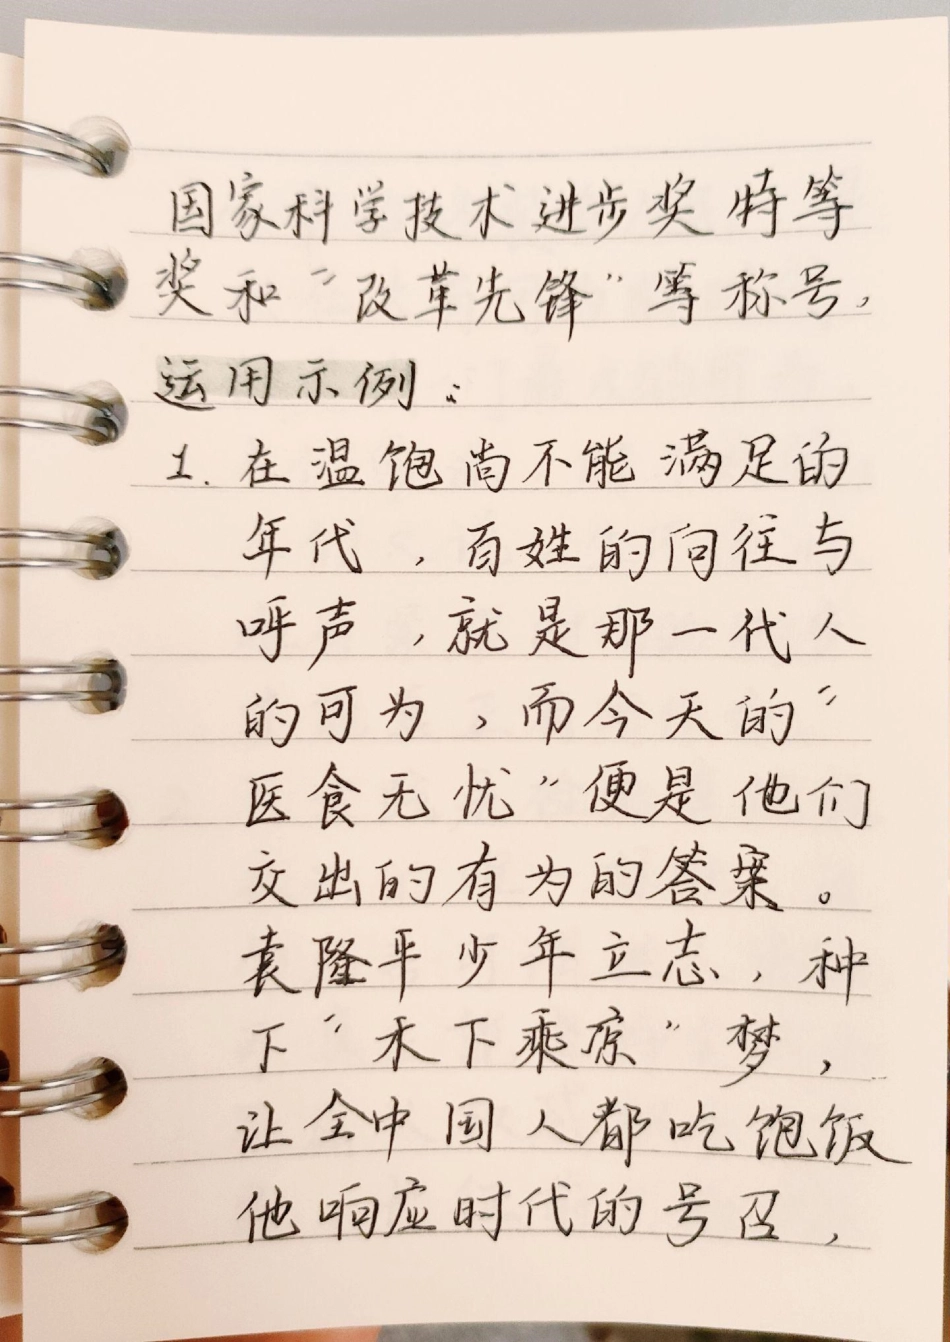 国家科学技术进步奖特等
奖和“改革先锋”等称号，
运用示例：
1. 在温饱尚不能满足的
年代，百姓的向往与
呼声，就是那一代人
的可为，而今天的“
医食无忧”便是他们
交出的有为的答案。
袁隆平少年立志，种
下“禾下乘凉”梦，
让全中国人都吃饱饭
他响应时代的号召，